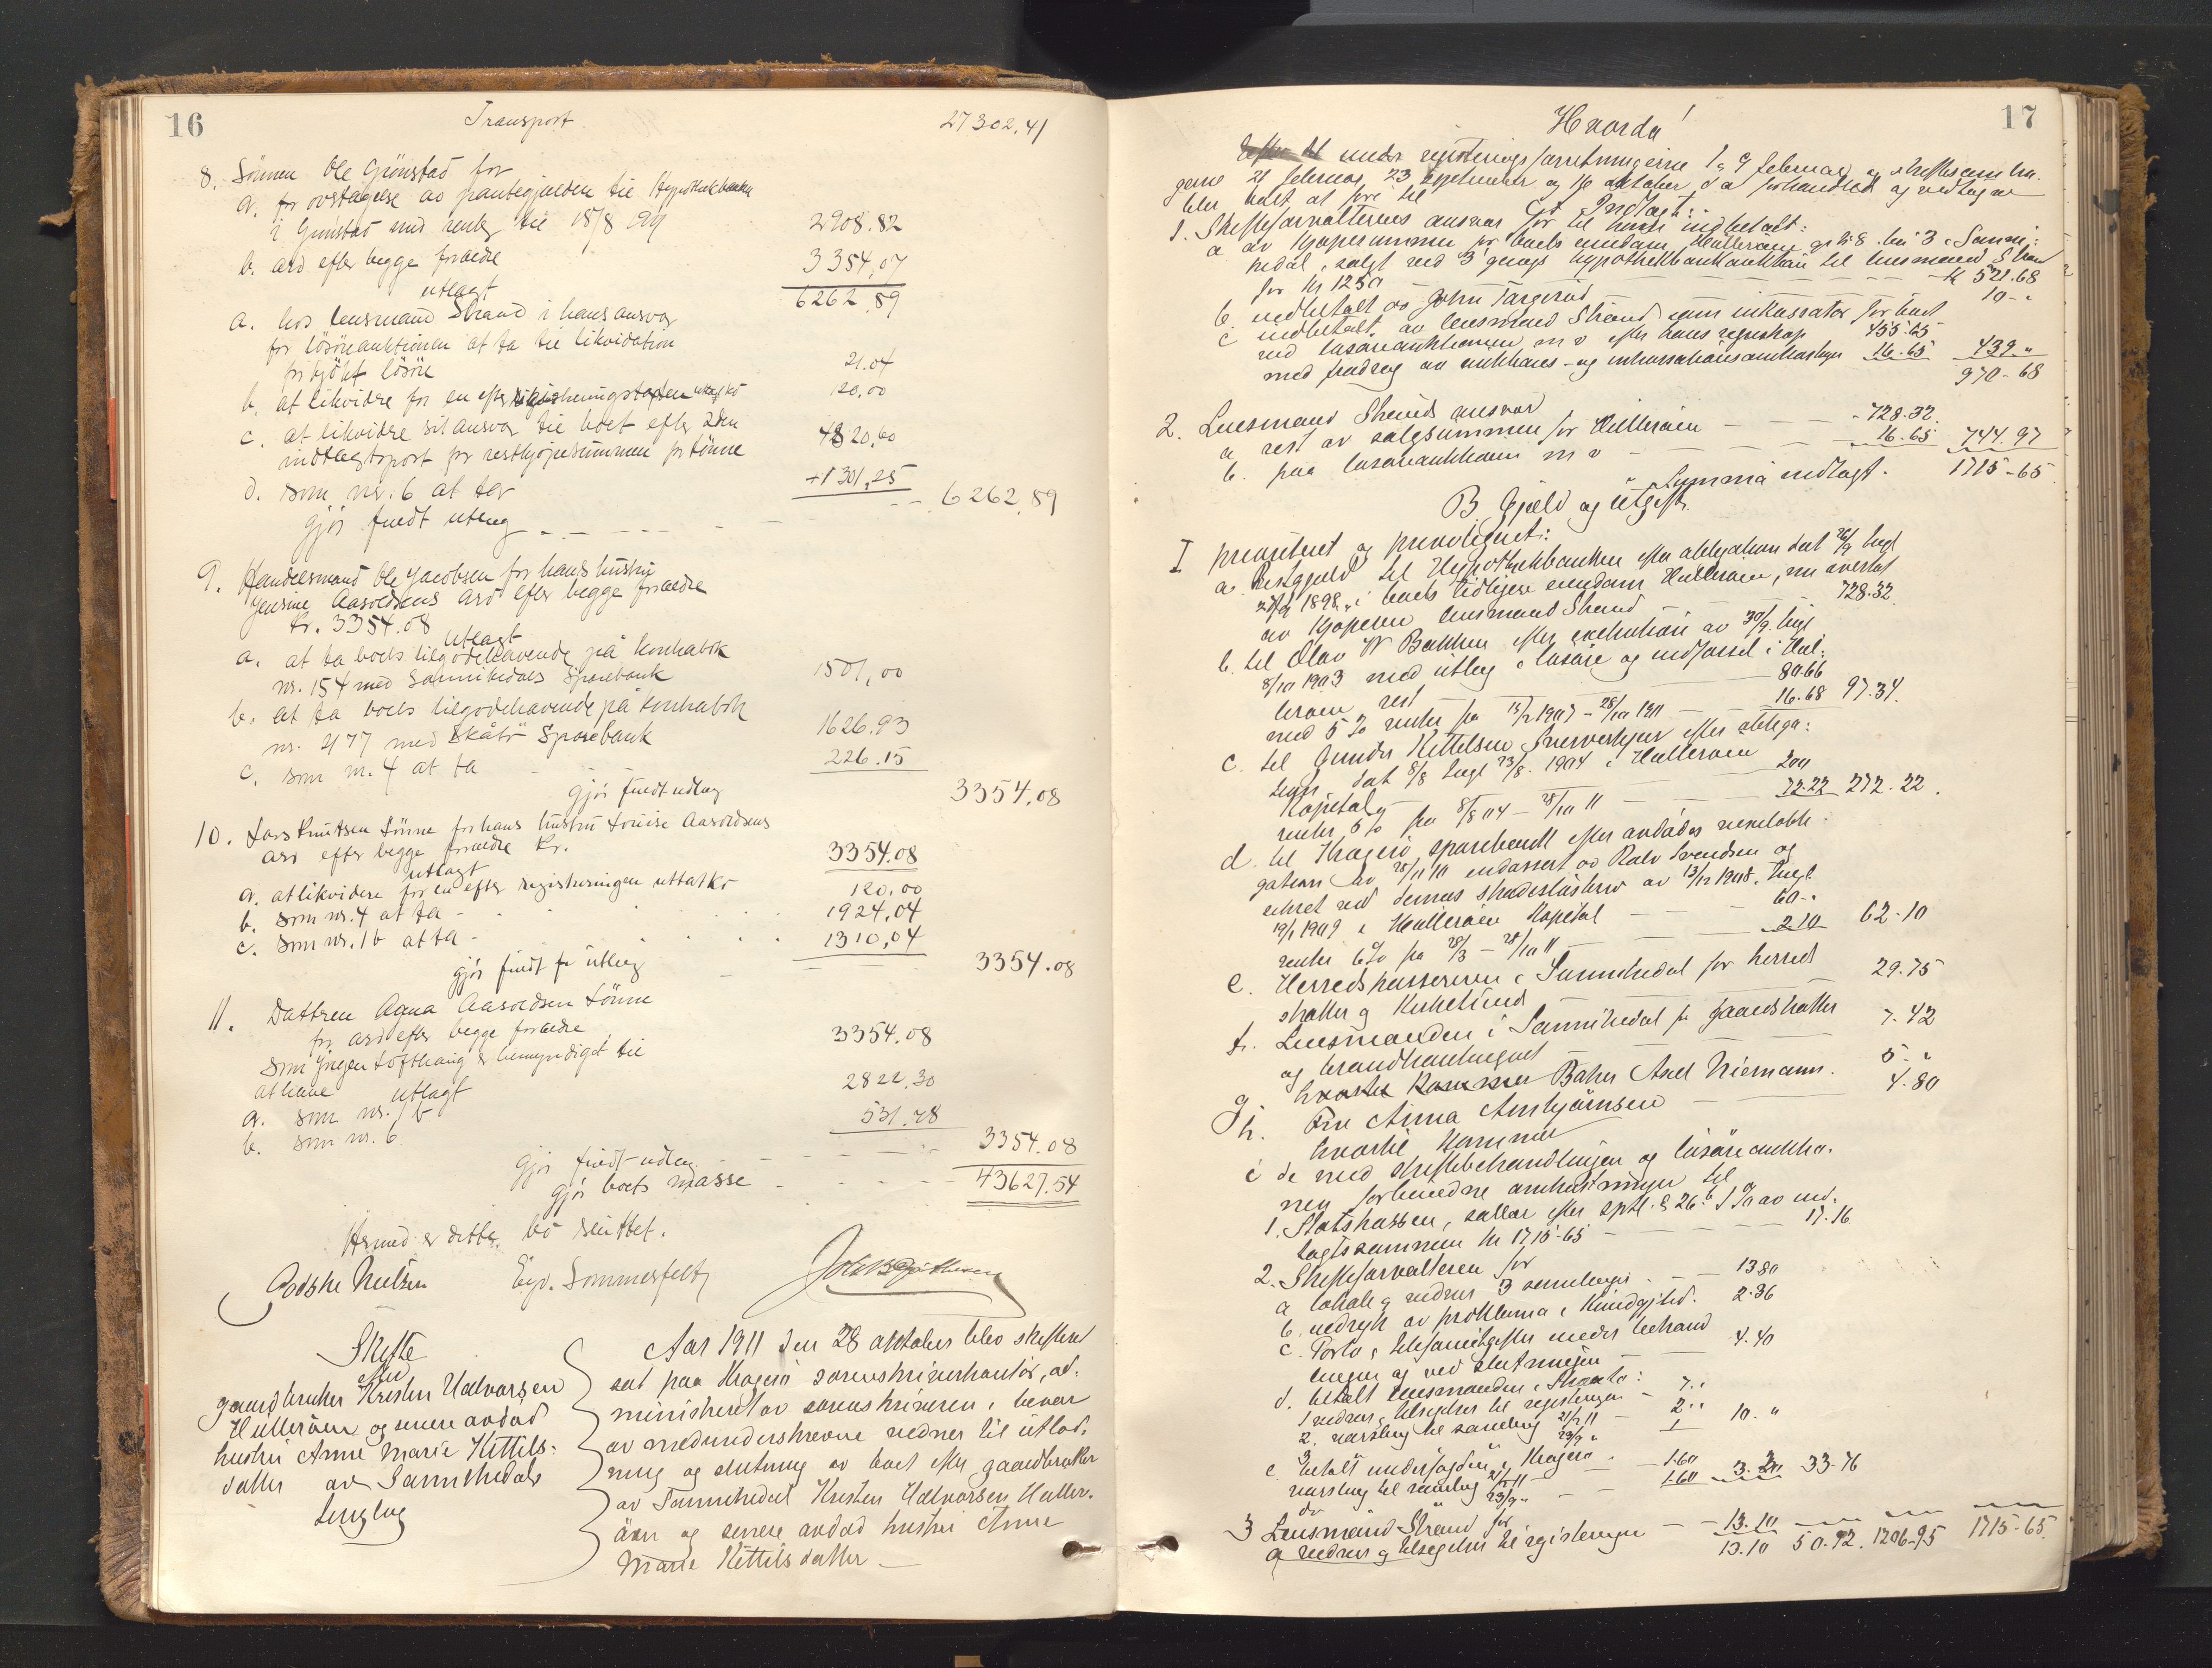 16
Transport 27302.41
8. Sönnen Ole Grönstad for
a. for overtagelse av pantegjælden til Hypothekbanken
i Grönstad med renter til 18/8 09 2908.82
b. arv efter begge forældre 3354,07
utlagt 6262,89
a. hos lensmand Strand i hans ansvar
for lösöreauktionen at ta til likvidation
for kjöpt lösöre 21.04
b. at likvidere for en efter registreringstaxten uttat ko 120,00
c. at likvidere sit ansvar til boet efter 2den
indtægtspost for restkjöpesummen for Tönne 4820,60
d. som nr. 6 at ta +1301,25
gjör fuldt utlæg - - - - 6262,89
9. Handelsmand Ole Jacobsen for hans hustru
Jensine Aasoldsens arv efter begge forældre
kr. 3354.08
utlagt
a. at ta boets tilgodehavende på kontrabok
nr. 154 med Sannikedals Sparebank 1501,00
b. at ta boets tilgodehavende på kontrabok
nr. 477 med Skåtö Sparebank 1626.93
c. som nr. 4 at ta 226.15
gjör fuldt udlæg 3354,08
10. Lars Knutsen Tönne for hans hustru Louise Aasoldsens
arv efter begge forældre kr. 3354.08
utlagt
a. at likvidere for en efter registreringen uttat ko 120,00
b. som nr. 4 at ta - 1924,04
c. som nr. 1b at ta - 1310,04
gjör fuldt for utlæg 3354.08
11. Dattren Agna Aasoldsen Tönne
for arv efter begge forældre 3354.08
som Jörgen Lofthaug er bemyndiget til
at hæve utlagt
a. som nr. 1 b 2822.30
b. som nr. 6 531.78
gjör fuldt udlæg 3354.08
gjör boets masse - 43627.54
Hermed er dette bo sluttet.
Godske Nielsen Eyv. Sommerfelt
Skifte
efter
gaardbruker Kristen Halvorsen
Hulleråen og senere avdöd
hustru Anne Marie Kittils-
datter av Sannikedals
tinglag
Aar 1911 den 28 oktober blev skifteret
sat paa Kragerö sorenskriverkontor, ad-
ministreret av sorenskriveren i nevær
av medunderskrevne vidner til utlod-
ning og slutning av boet efter gaardbruker
av Sannikedal Kristen Halvorsen Huller-
åen og senere avdöd hustru Anne
Marie Kittilsdatter -
17
Hvorda!
under registreringsforretningerne 1 og 9 februar og skiftesamlin-
gerne 21 februar, 23 september og oktober d a forhandlet og vedtaget
blev boet at före til
A Indtægt:
1. Skifteforvalterens ansvar for til ham indbetalt:
a av kjöpesummen for boets eiendom Hulleråen gr nr 8 bnr 3 i Sanni-
kedal, solgt ved 3 gangs hypothekbankauktion til lensmand Strand
for kr 1250 - - - - - - - kr 521.68
b. indbetalt av John Targerud 10 -"
c indbetalt av lensmand Strand som inkassator for boet
ved lösöreauktionen m v efter hans regnskap 455.65
med fradrag av auktions- og inkassationsomkostninger 16.65 439 "
970-68
2. Lensmand Strands ansvar
a rest av salgssummen for Hulleråen - - 728.32
b. paa lösöreauktionen m v - 16.65 744.97
Summa indtægt. 1715-65
B Gjæld og utgift.
I prioritert og privilegert:
a. Restgjæld til Hypothekbanken efter obligation dat 26/9 tingl
27/9 1898 i boets tidligere eiendom Hulleråen, nu overtat
av kjöperen lensmand Strand - - 728.32
b. til Olav N Bakken efter exekution av 30/9 tingl
8/10 1903 med utlæg i lösöre og indförsel i Hul-
leråen, rest 80.66
med 5% renter fra 13/2 1907 - 28/10 1911 - 16.68 97.34.
c. til Gunder Kittelsen Snerverkjær efter obliga-
tion dat 8/8 tingl 23/8 1904 i Hulleråen
Kapital 200
renter 5% fra 8/8 04 - 28/10 11 - 72.22 272.22.
d. til Kragerö sparebank efter avdödes vexelobli-
gation av 28/11 10 endossert av Rolv Svendsen og
sikret ved dennes skadeslösbrev av 13/12 1908, tingl
19/1 1909 i Hulleråen Kapital - 60-"
renter 6% fra 28/3 - 28/10 11 2.10 62-10
e. Herredskassereren i Sannikedal for herreds-
skatter og kirketiende - 29.75
f. Lensmanden i Sannikedal for jordskatter
og brandkontingent - 7.42
g. Baker Axel Niemann. 5-"
h. Fru Anna Ambjörnsen - 4.80
hvortil kommer
i de med skiftebehandlingen og lösöreauktio-
nen forbundne omkostninger til
1. Statskassen, sallær efter sptl. § 26 b 1% av ind-
tægtssummen kr 1715-65 - 17.16
2. Skifteforvalteren for
a lokale og vidner 3 samlinger - 13 80
b. indrykk av proklama i Kundgj.tid. 2.36
c. Porto, telefonutgifter under behand-
lingen og ved slutningen - 4.40
d. betalt lensmanden i Skaatö:
1 vidner, tilsigelser til registeringen - 7."
2. varsling til samling 21/2 11 - 2."
3 23/9 " 1 10. "
e. betalt underfogden i Kragerö
varsling til samling 21/2 11 - 1.60
do 23/9 " - 1.60 3.20 33-76
3 Lensmand Strand for
a vidner og tilsigelser til registeringen - - 13.10
13.10 50.92. 1206-95 1715-65.